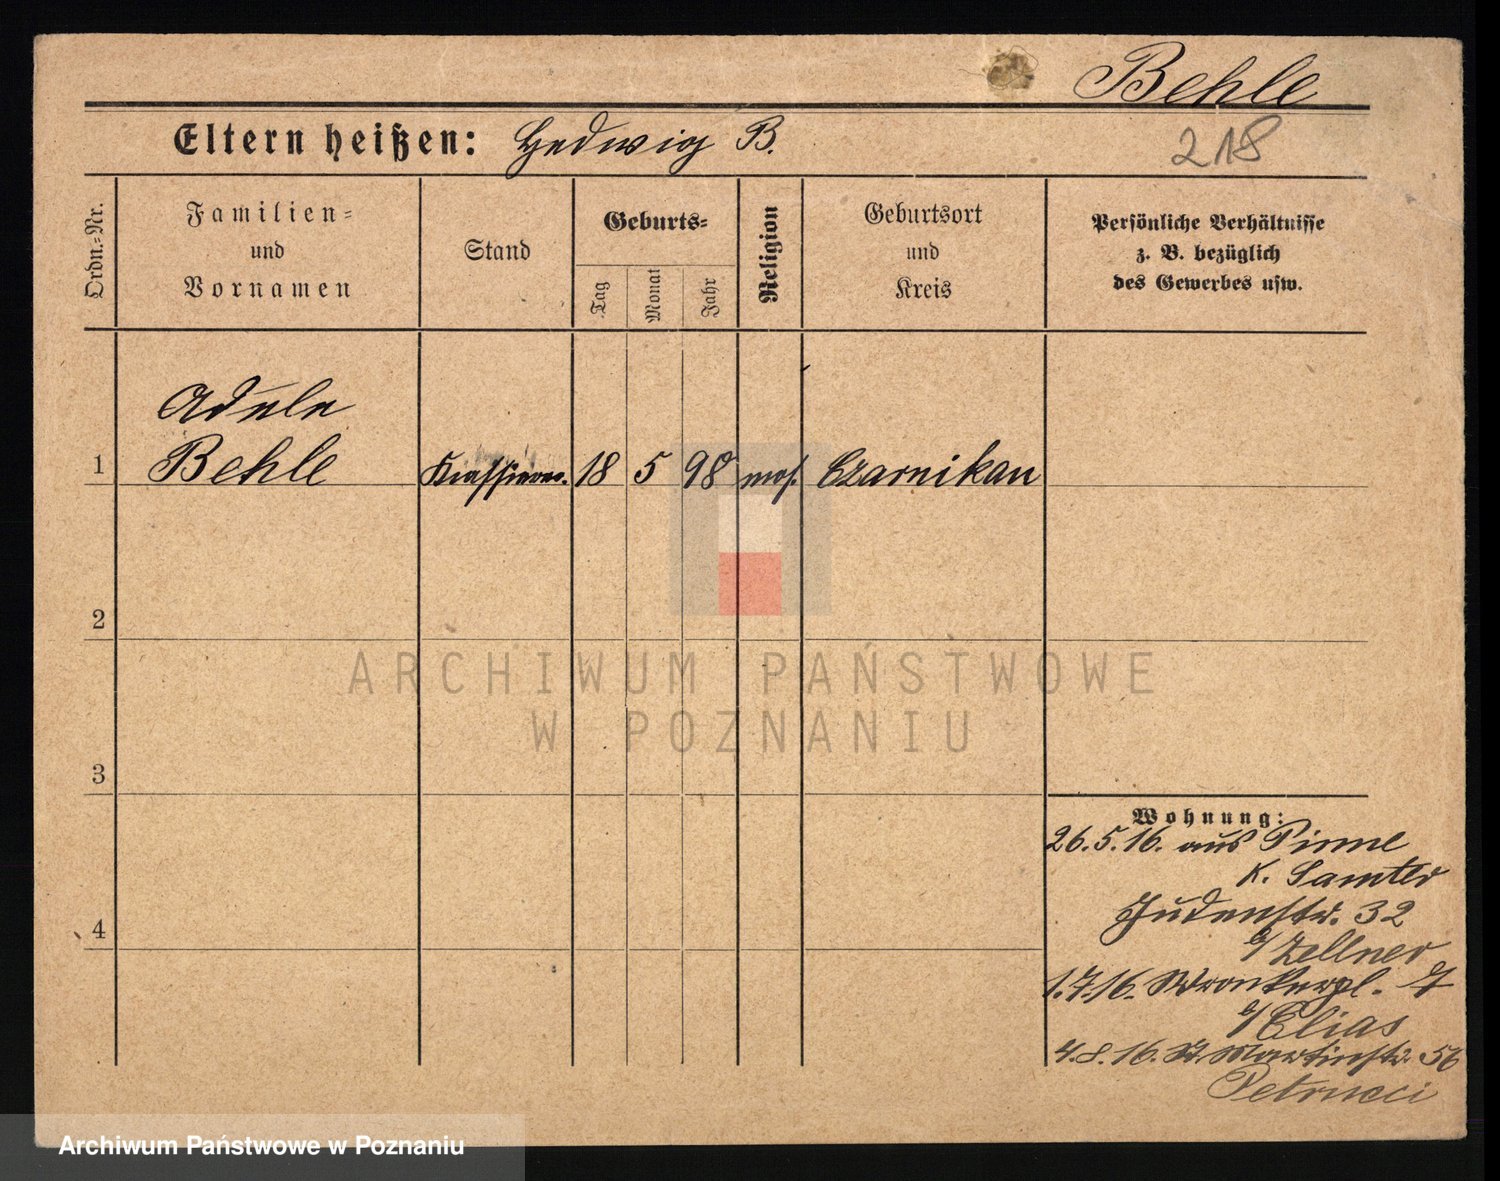 Behle
Eltern heißen: Hedwig B.
218
Ordn.-Nr.
Familien-
und
Vornamen
Stand
Geburts-
Tag
Monat
Jahr
Religion
Geburtsort
und
Kreis
Persönliche Verhältnisse
z. B. bezüglich
des Gewerbes usw.
Adele
1 Behle Kassiererin. 18 5 98 mos. Czarnikau
2
3
4
Wohnung:
26.5.16. aus Pinne
K. Samter
Judenstr. 32
b/ Zellner
1.7.16. Wronkerpl. 7
b/ Elias
4.8.16. St. Martinstr. 56
Petrucci
ARCHIWUM PAŃSTWOWE
W POZNANIU
Archiwum Państwowe w Poznaniu